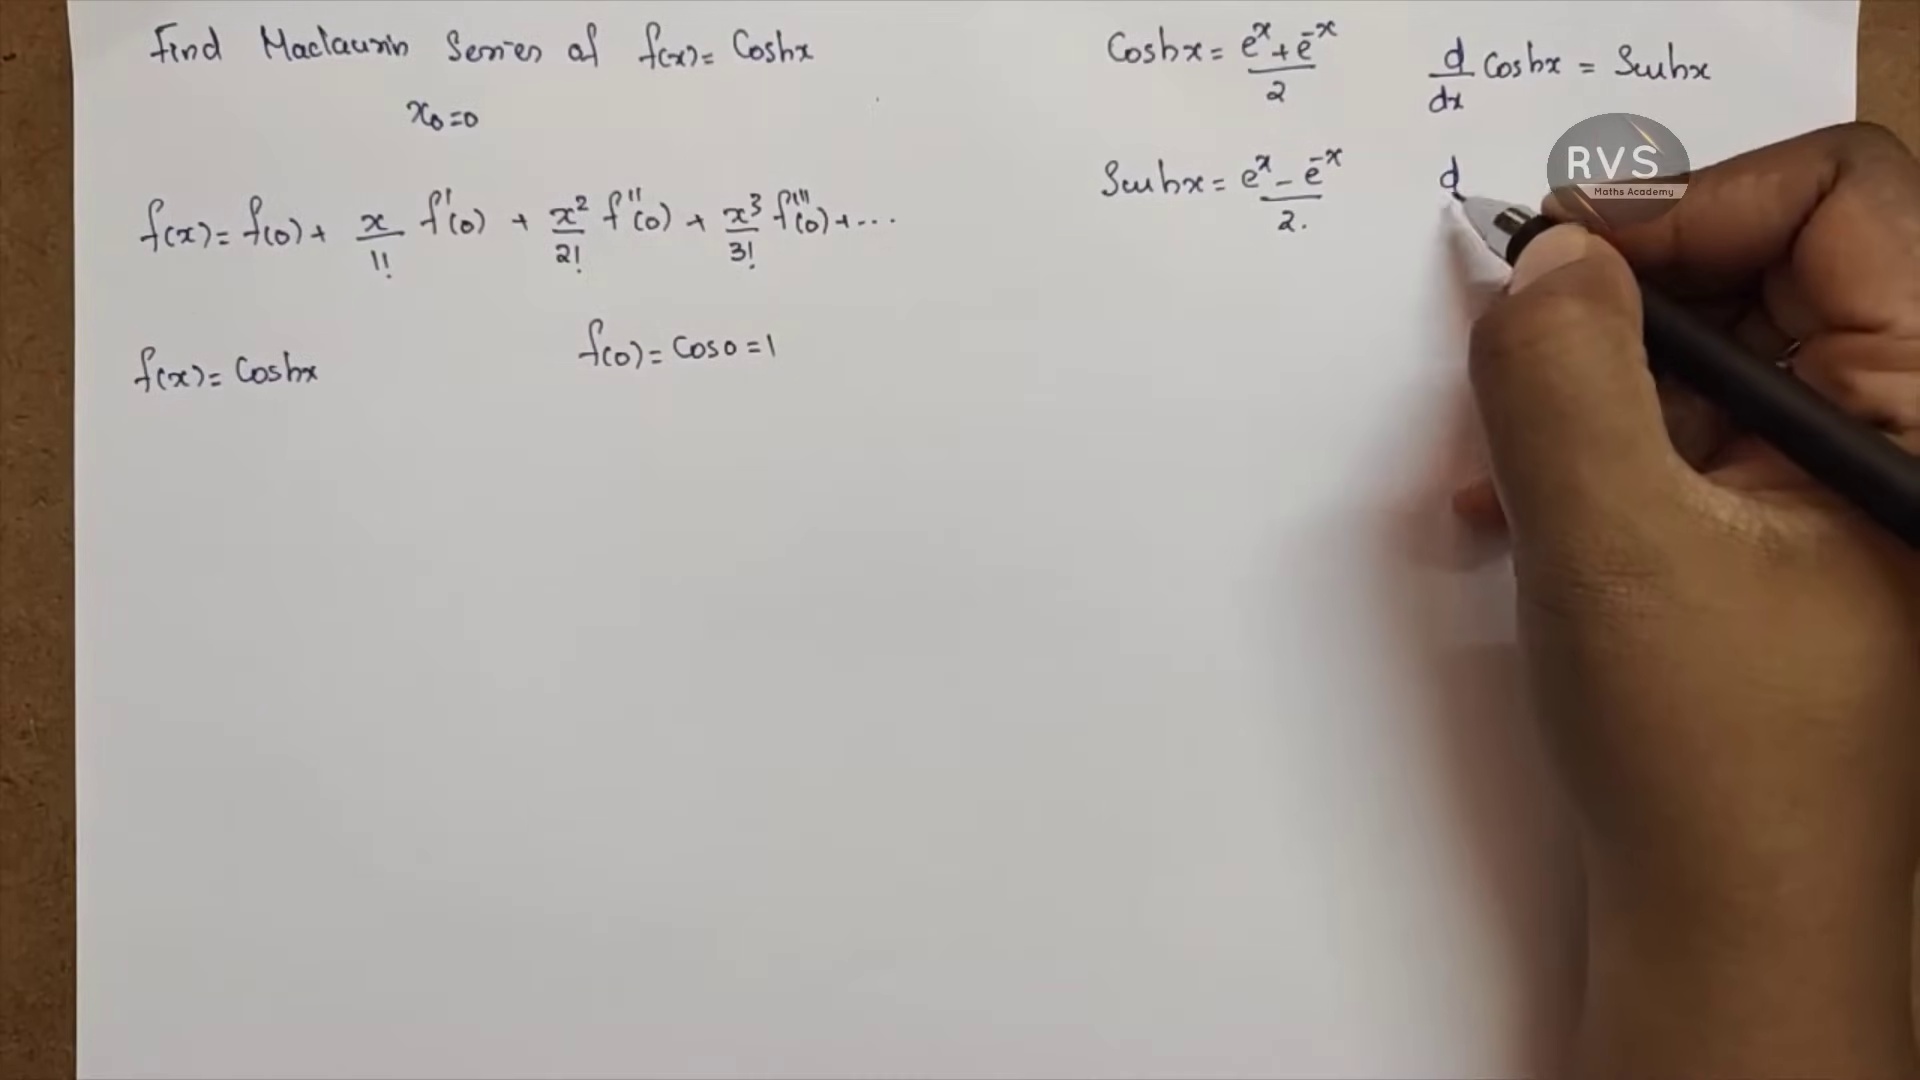 Find Maclaurin Series of f(x) = Coshx
x₀=0
f(x) = f(0) + x/1! f'(0) + x²/2! f''(0) + x³/3! f'''(0) + ...
f(x) = Coshx
f(0) = Cos0 = 1
Coshx = (eˣ + e⁻ˣ)/2
Sinhx = (eˣ - e⁻ˣ)/2.
d/dx Coshx = Sinhx
d
RVS
Maths Academy